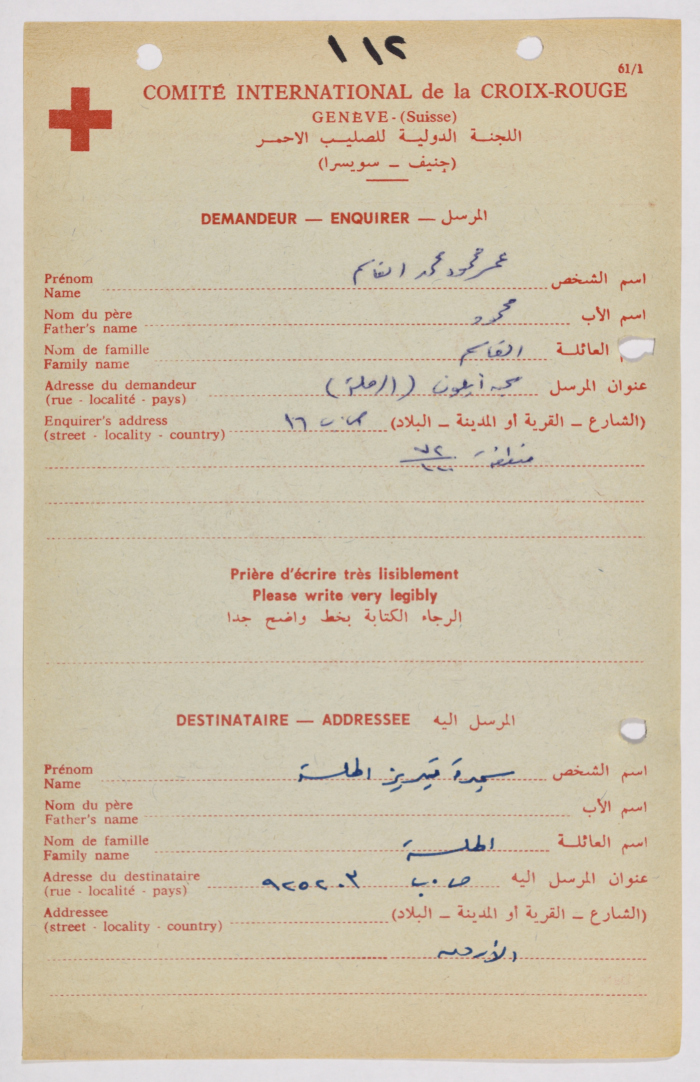 ١١٢
61/1
COMITÉ INTERNATIONAL de la CROIX-ROUGE
GENÈVE - (Suisse)
اللجنة الدولية للصليب الاحمر
(جنيف – سويسرا)
DEMANDEUR — ENQUIRER — المرسل
Prénom
Name
عمر محمود محمد القاسم
اسم الشخص
Nom du père
Father's name
محمود
اسم الأب
Nom de famille
Family name
القاسم
العائلة
Adresse du demandeur
(rue - localité - pays)
(الرملة)
عنوان المرسل
Enquirer's address
(street - locality - country)
ص.ب ١٦
(الشارع – القرية أو المدينة – البلاد)
منطقة
Prière d'écrire très lisiblement
Please write very legibly
الرجاء الكتابة بخط واضح جدا
DESTINATAIRE — ADDRESSEE المرسل اليه
Prénom
Name
سميرة
اسم الشخص
Nom du père
Father's name
اسم الأب
Nom de famille
Family name
اسم العائلة
Adresse du destinataire
(rue - localité - pays)
ص.ب ٩٢٥٢٠٣
عنوان المرسل اليه
Addressee
(street - locality - country)
(الشارع – القرية أو المدينة – البلاد)
الأردن